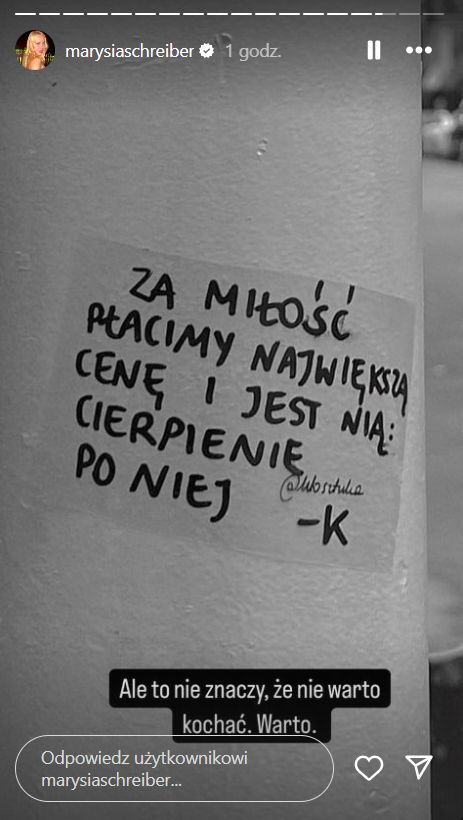 marysiaschreiber 1 godz.
ZA MIŁOŚĆ
PŁACIMY NAJWIĘKSZĄ
CENĘ I JEST NIĄ:
CIERPIENIE
PO NIEJ
-K
Ale to nie znaczy, że nie warto
kochać. Warto.
Odpowiedz użytkownikowi
marysiaschreiber...